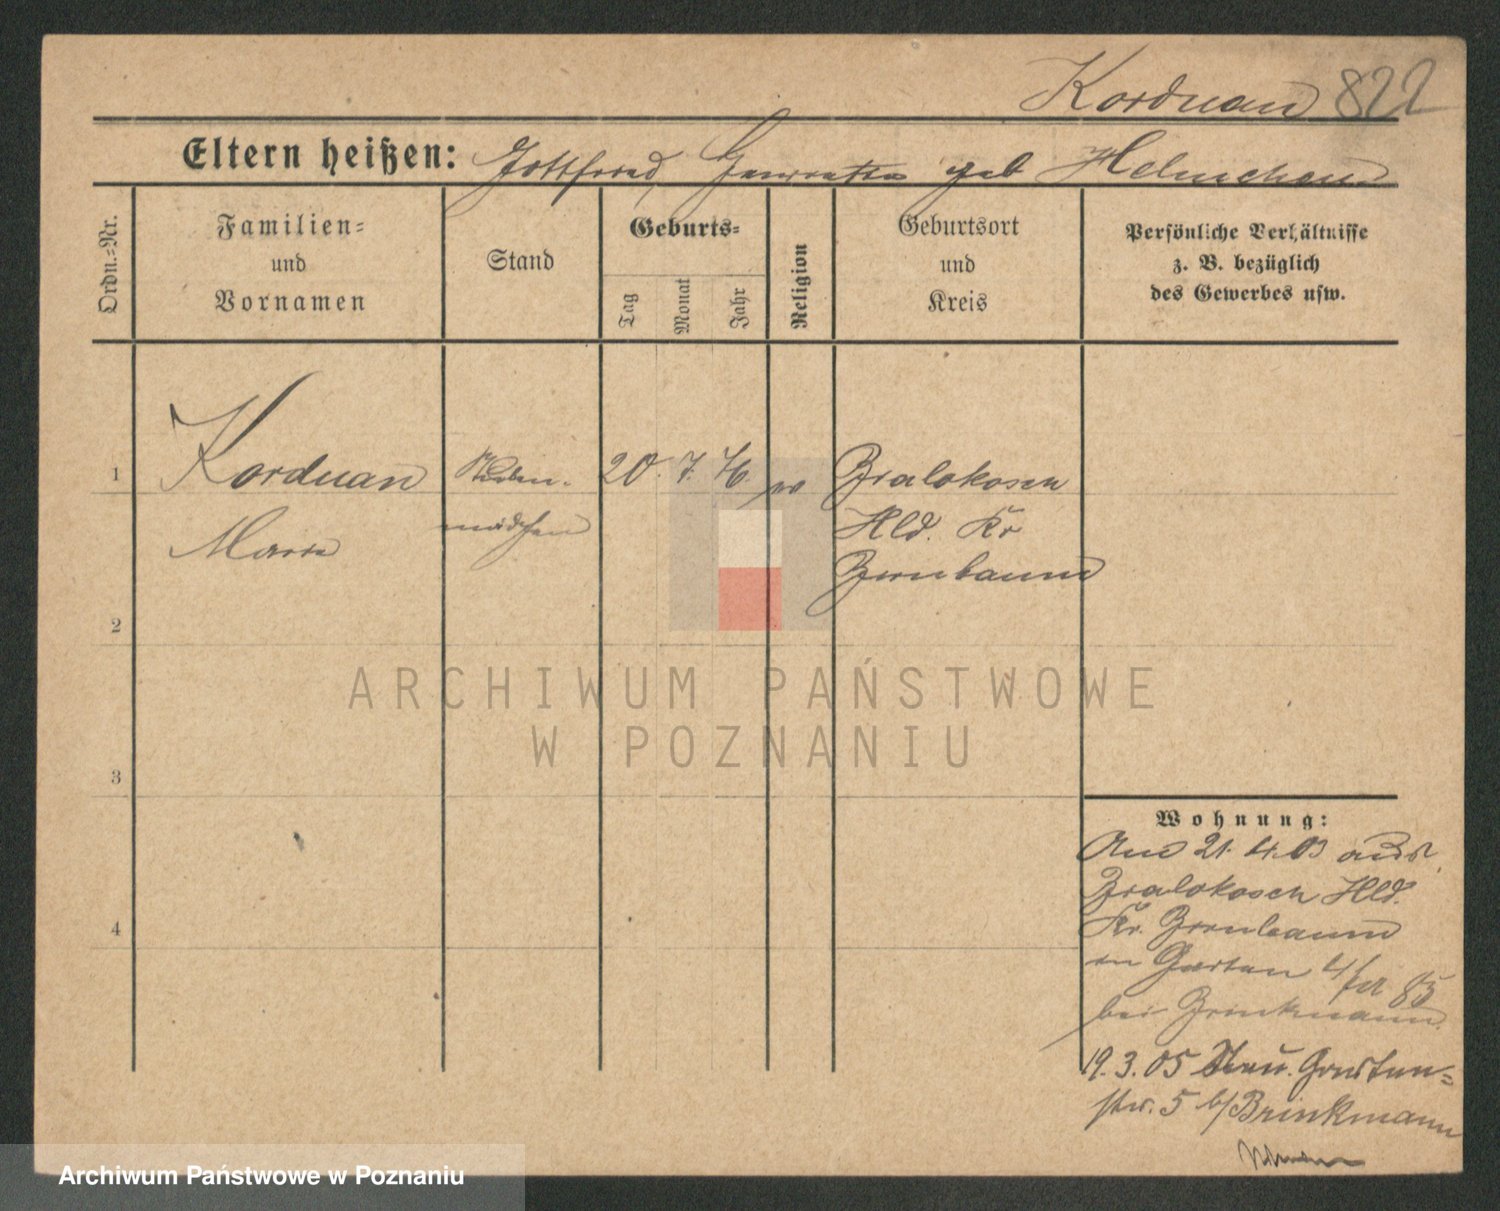 Korduan 822
Eltern heißen: Gottfried, geb Helmchen
Ordn.=Nr.
Familien=
und
Vornamen
Stand
Geburts=
Tag
Monat
Jahr
Religion
Geburtsort
und
Kreis
Persönliche Verhältnisse
z. B. bezüglich
des Gewerbes usw.
1
Korduan
Maria
mädchen
20. 7. 76.
ev
Zralokosch
Hld. Kr
Birnbaum
2
3
4
Wohnung:
21. 4. 03 aus
Zralokosch Hld.
Kr. Birnbaum
in Garten 4/
bei Brinkmann
19. 3. 05 Neu. Garten=
str. 5 b/Brinkmann
ARCHIWUM PAŃSTWOWE
W POZNANIU
Archiwum Państwowe w Poznaniu